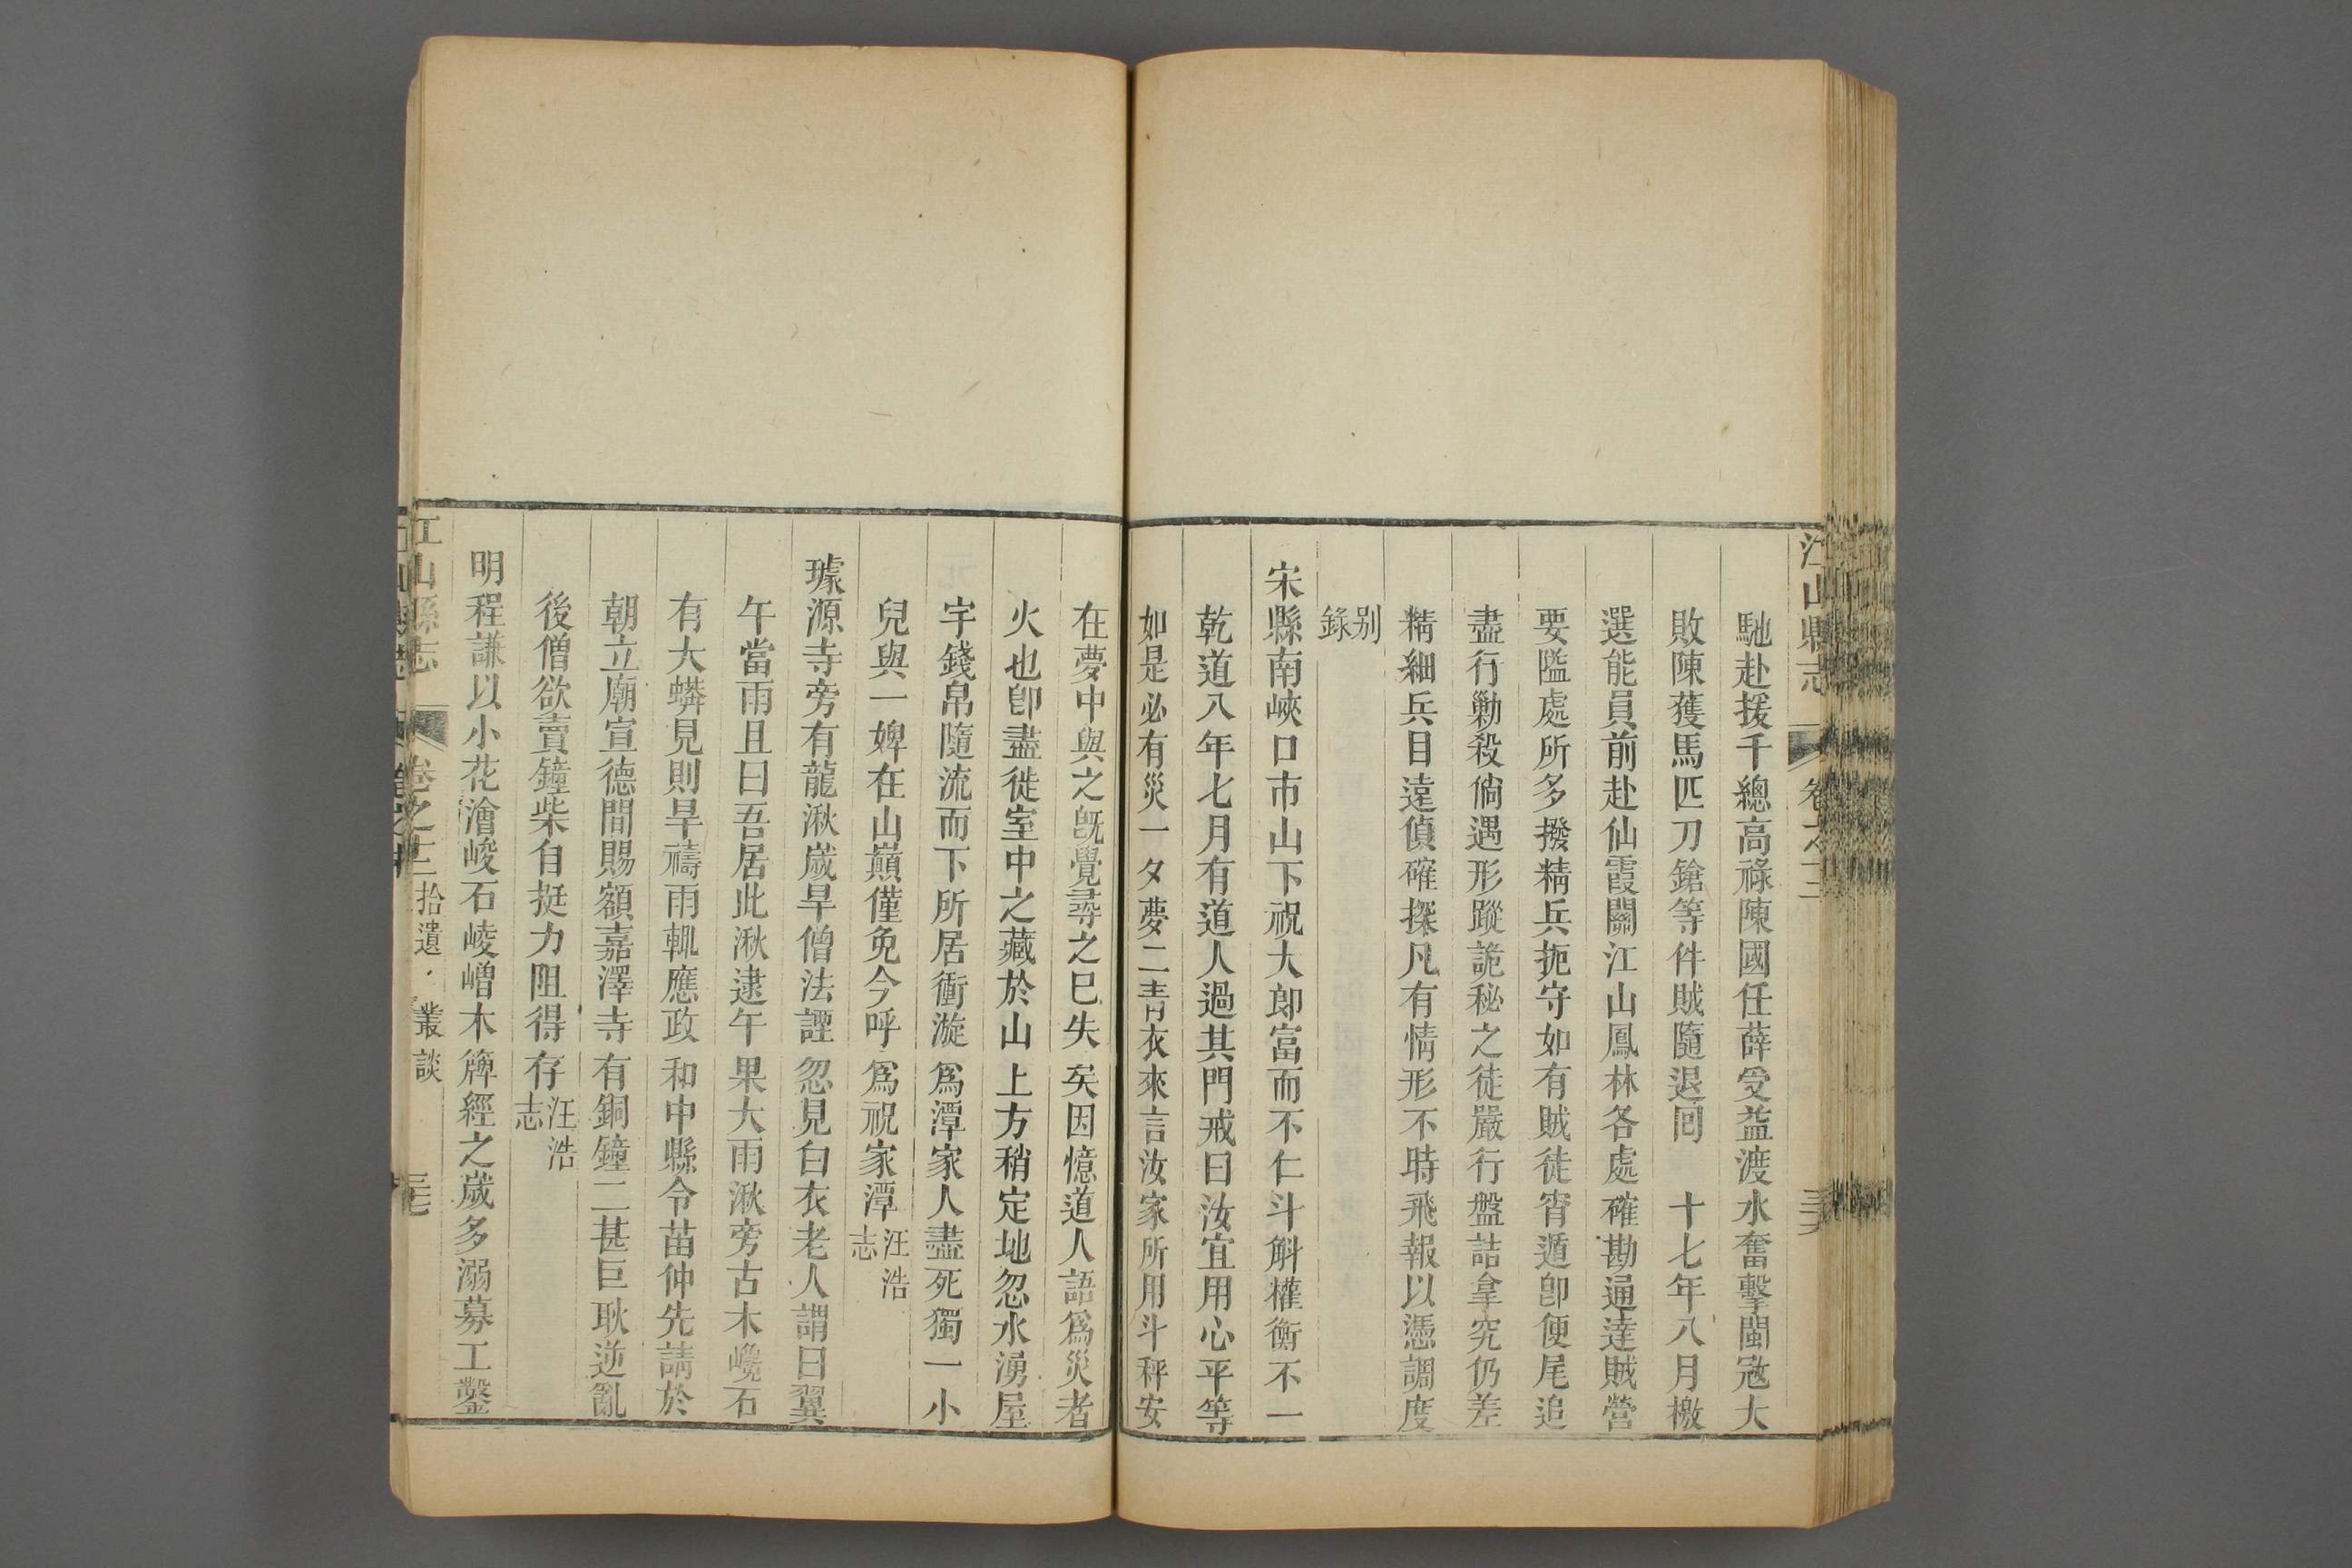 江山縣志 卷之十二 三十六
馳赴援千總高祿陳國任薛受益渡水奮擊閩寇大
敗陳獲馬匹刀鎗等件賊隨退囘 十七年八月檄
選能員前赴仙霞關江山鳳林各處確勘通達賊營
要隘處所多撥精兵扼守如有賊徒宵遁卽便尾追
盡行勦殺倘遇形蹤詭秘之徒嚴行盤詰拿究仍差
精細兵目遠偵確探凡有情形不時飛報以憑調度
别錄
宋縣南峽口市山下祝大郞富而不仁斗斛權衡不一
乾道八年七月有道人過其門戒曰汝宜用心平等
如是必有災一夕夢二青衣來言汝家所用斗秤安
在夢中與之旣覺尋之巳失矣因憶道人語爲災者
火也卽盡徙室中之藏於山上方稍定地忽水湧屋
宇錢帛隨流而下所居衝漩爲潭家人盡死獨一小
兒與一婢在山巓僅免今呼爲祝家潭汪浩志
璩源寺旁有龍湫歲旱僧法諲忽見白衣老人謂曰翼
午當雨且曰吾居此湫逮午果大雨湫旁古木巉石
有大蟒見則旱禱雨輒應政和中縣令苗仲先請於
朝立廟宣德間賜額嘉澤寺有銅鐘二甚巨耿逆亂
後僧欲賣鐘柴自挺力阻得存汪浩志
明程謙以小花澮峻石崚嶒木簰經之歲多溺募工鑿
江山縣志 卷之十二 拾遺 叢談 三十七